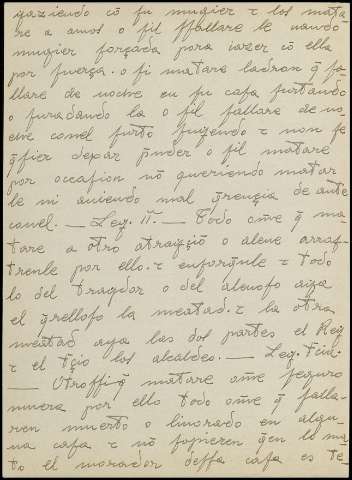 yaziendo cō su mugier τ los mata-
re a amos o sil ffallare le uando
mugier forçada pora iazer cō ella
por fuerça. o si matare ladron q̄ fa-
llare de noche en su casa furtando
o furadando la o sil fallare de no-
che conel furto fuyendo τ non se
q̄sier depar p̄nder o sil matare
por occasion nō queriendo matar
le ni auiendo mal q̄rençia de ante
conel. — Ley. II. — Todo om̄e q̄ ma-
tare a otro atrayçiō o aleue arras-
trenle por ello. τ enforq̄nle τ todo
lo del traydor o del aleuoso aya
el q̄relloso la meatad. τ la otra
meatad aya las dos partes el Rey
τ el t̄çio los alcaldes. — Ley. Tēia.
— Otrossi q̄ matare om̄e seguro
muera por ello todo om̄e q̄ falla-
ren muerto o liuorado en algu-
na casa τ nō sopieren q̄en lo ma-
to el morador dessa casa es te-